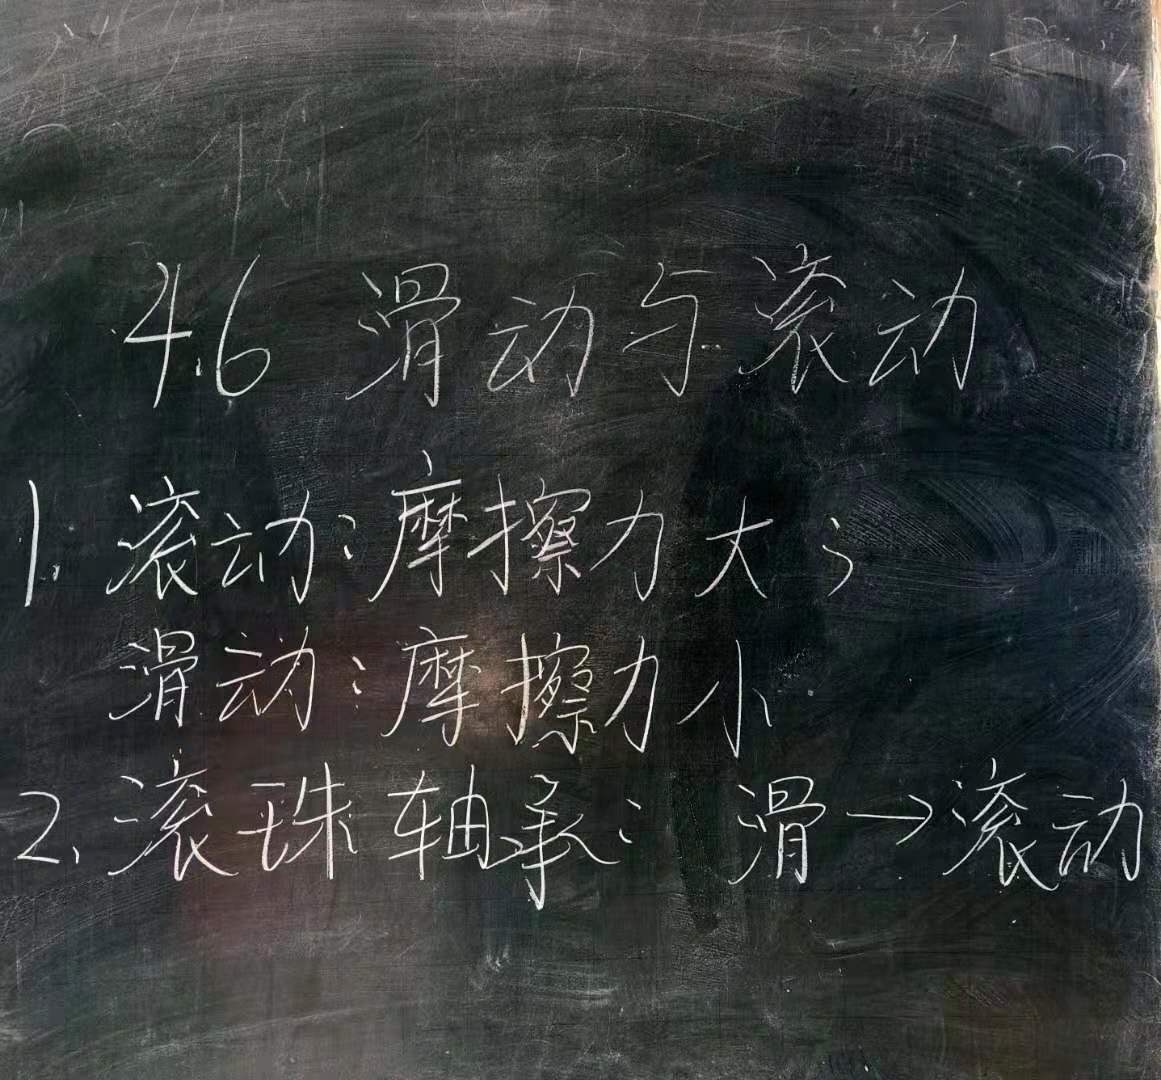 4.6 滑动与滚动
1. 滚动：摩擦力大；
滑动：摩擦力小
2. 滚珠轴承：滑→滚动